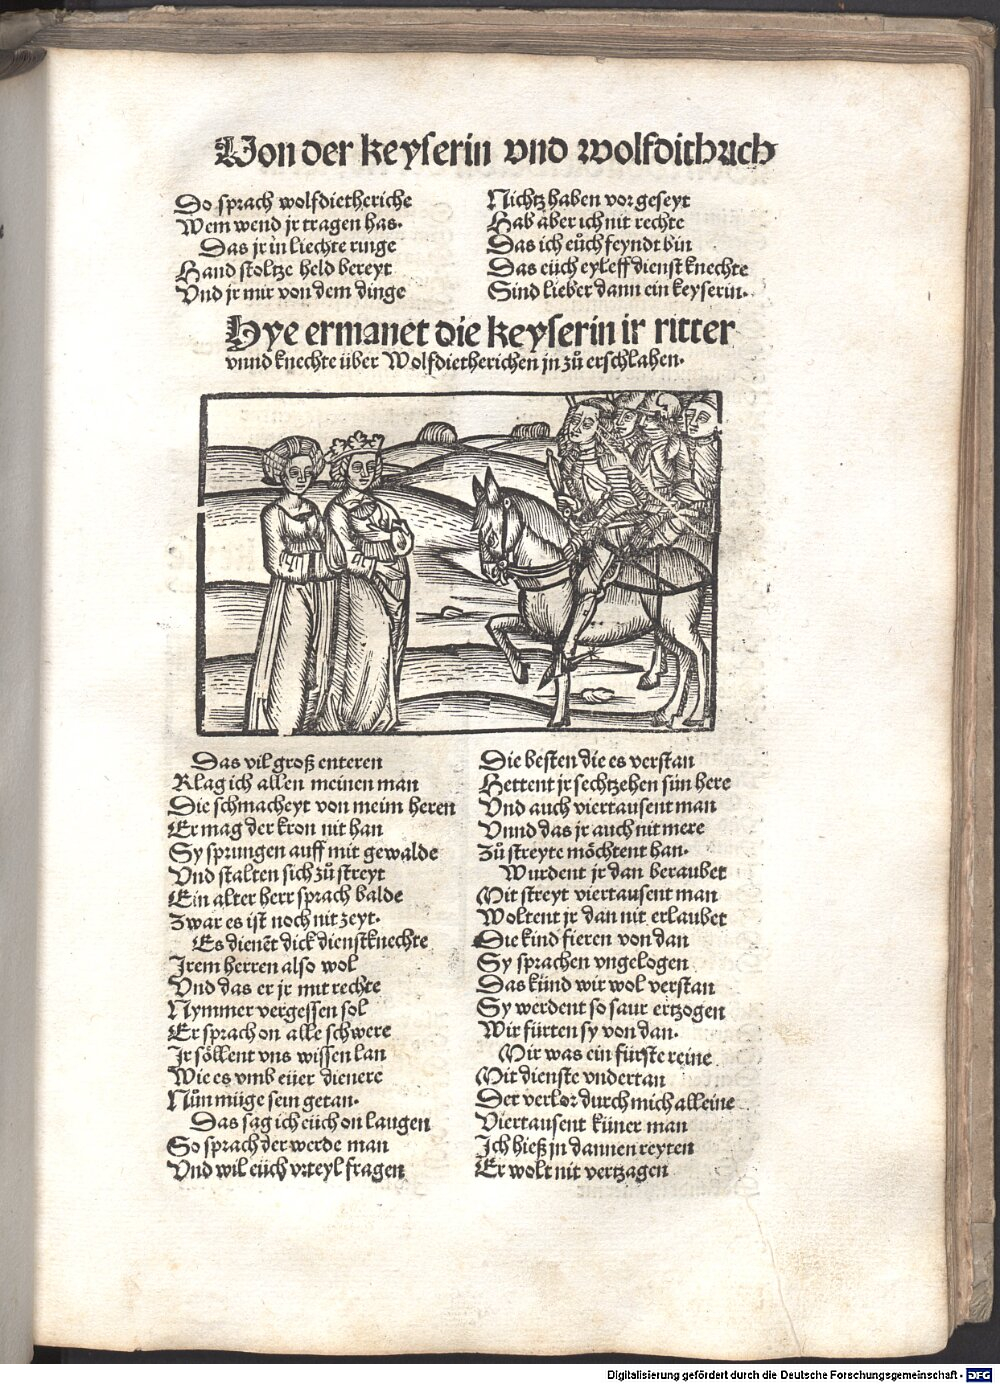 Von der keyserin vnd wolfdithrich
So sprach wolfdietheriche
Wem wend jr tragen has.
Das jr in liechte ringe
Hand stoltze held bereyt
Vnd jr mir von dem dinge
Nichtz haben vor geseyt
Hab aber ich nit rechte
Das ich eüch feyndt bin
Das eüch eyleff dienst knechte
Sind lieber dann ein keyserin.
Hye ermanet die keyserin ir ritter
vnnd knechte über Wolfdietherichen jn zů erschlahen.
Das vil groß enteren
Klag ich allen meinen man
Die schmacheyt von meim heren
Er mag der kron nit han
Sy sprungen auff mit gewalde
Vnd stalten sich zů streyt
Ein alter herr sprach balde
Zwar es ist noch nit zeyt.
Es dienet dick dienstknechte
Irem herren also wol
Vnd das er jr mit rechte
Nymmer vergessen sol
Er sprach on alle schwere
Ir söllent vns wissen lan
Wie es vmb eüer dienere
Nůn müge sein getan.
Das sag ich eüch on laugen
So sprach der werde man
Vnd wil eüch vrteyl fragen
Die besten die es verstan
Hettent jr sechtzehen sün here
Vnd auch viertausent man
Vnnd das jr auch nit mere
Zů streyte möchtent han.
Wurdent jr dan beraubet
Mit streyt viertausent man
Woltent jr dan nit erlaubet
Die kind fieren von dan
Sy sprachen vngelogen
Das künd wir wol verstan
Sy werdent so saur ertzogen
Wir fürten sy von dan.
Mir was ein fürste reine
Mit dienste vndertan
Der verlor durch mich alleine
Viertausent küner man
Ich hieß jn dannen reyten
Er wolt nit vertzagen
Digitalisierung gefördert durch die Deutsche Forschungsgemeinschaft - DFG